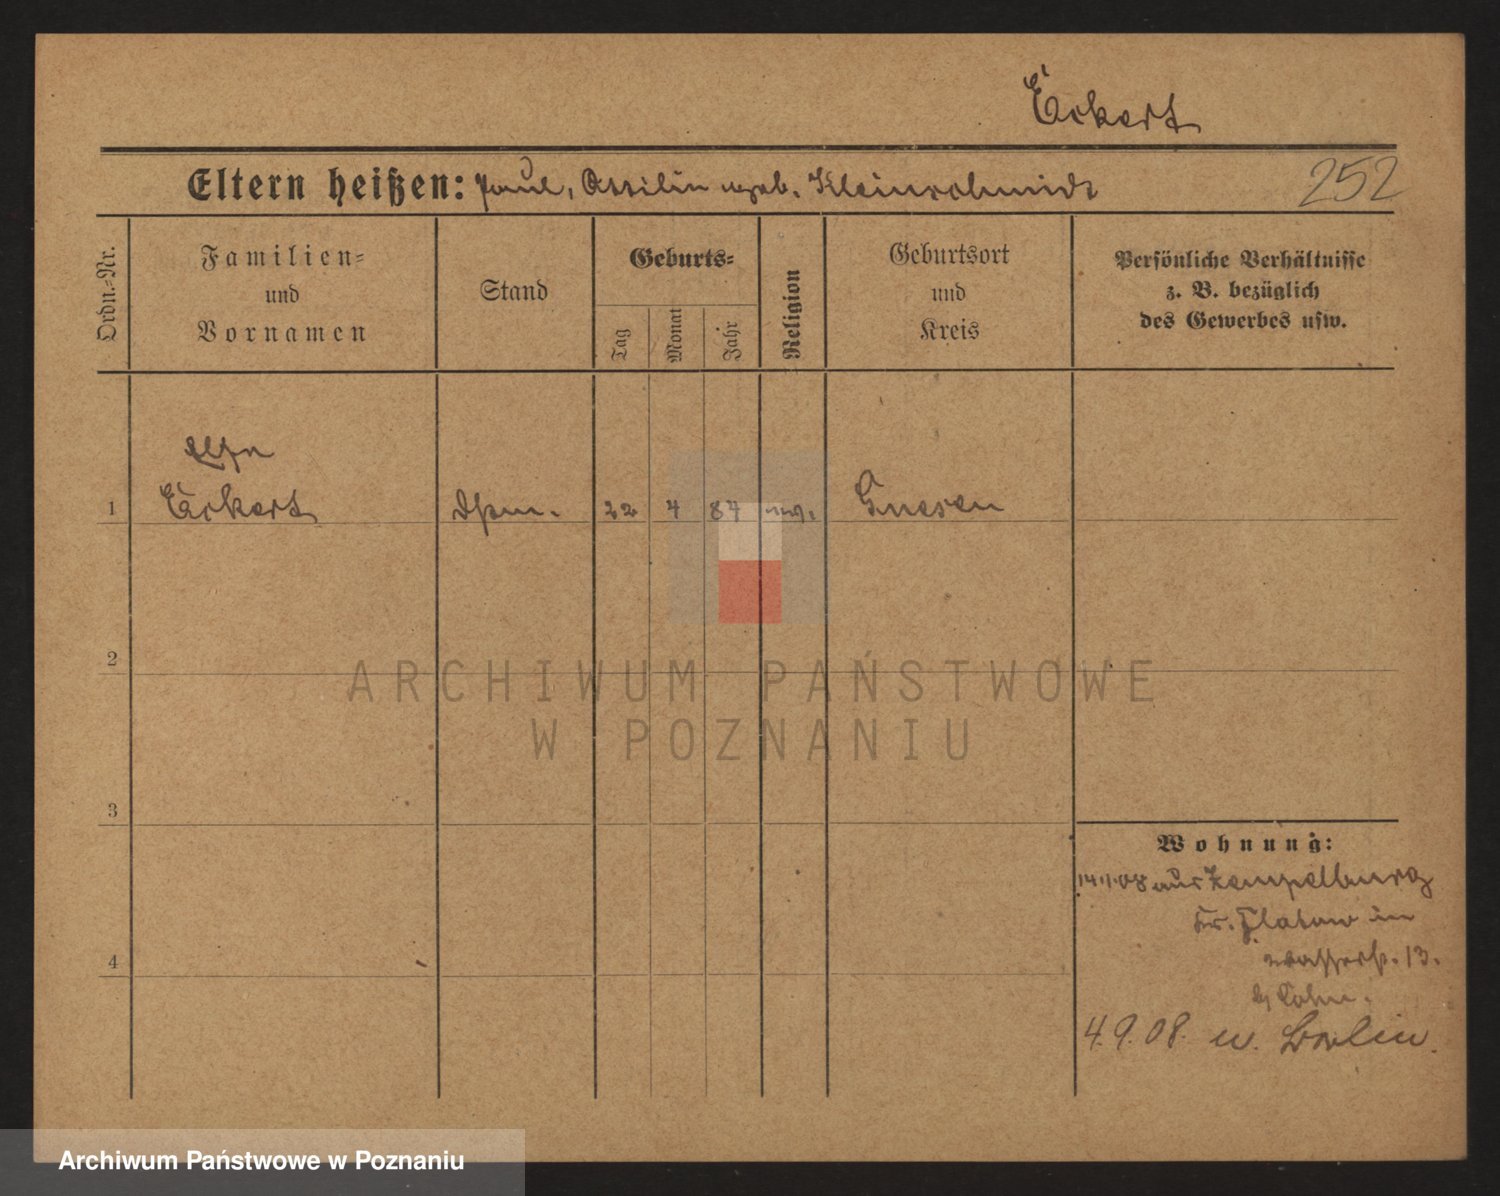 Eckert
Eltern heißen: Paul, Ottilie geb. Kleinschmidt
252
Ordn.-Nr.
Familien-
und
Vornamen
Stand
Geburts-
Tag
Monat
Jahr
Religion
Geburtsort
und
Kreis
Persönliche Verhältnisse
z. B. bezüglich
des Gewerbes usw.
Else
1 Eckert 22 4 84 ev. Gnesen
2
3
4
ARCHIWUM PAŃSTWOWE
W POZNANIU
Wohnung:
14.1.08 aus Zempelburg
Kr. Flatow in
Wasserstr. 13.
b/ Cohn.
4.9.08. n. Berlin.
Archiwum Państwowe w Poznaniu